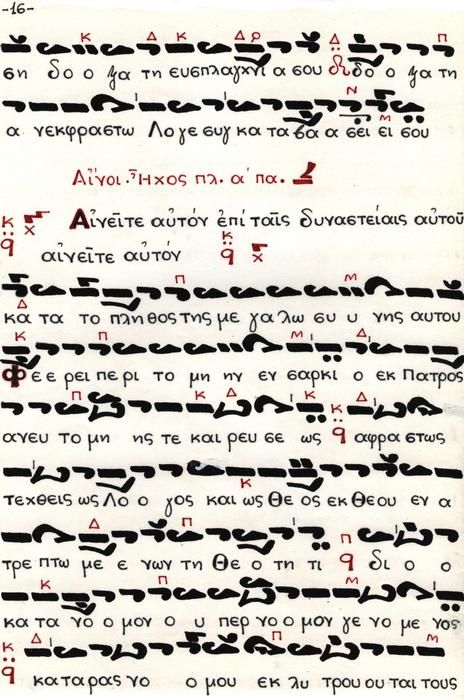 -16-
ση δο ο ξα τη ευσπλαγχνι α σου δο ο ξα τη
α νεκφραστω Λο γε συγ κα τα βα α σει ει σου
Αἶνοι. Ἦχος πλ. α΄ πα.
Αἰνεῖτε αὐτόν ἐπί ταῖς δυναστείαις αὐτοῦ
αἰνεῖτε αὐτόν
κα τα το πλη θος της με γα λω συ υ νης αυτου
Φε ε ρει πε ρι το μη ην εν σαρκι ο εκ Πατρος
ανευ το μη ης τε και ρευ σε ως αφρα στως
τεχθεις ως Λο ο γος και ως Θε ος εκ Θεου εν α
τρε πτω με ε νων τη Θε ο τη τι δι ο ο
κα τα νο ο μον ο υ περ νο ο μον γε νο με νος
κα τα ρας νο ο μου εκ λυ τρου ου ται τους